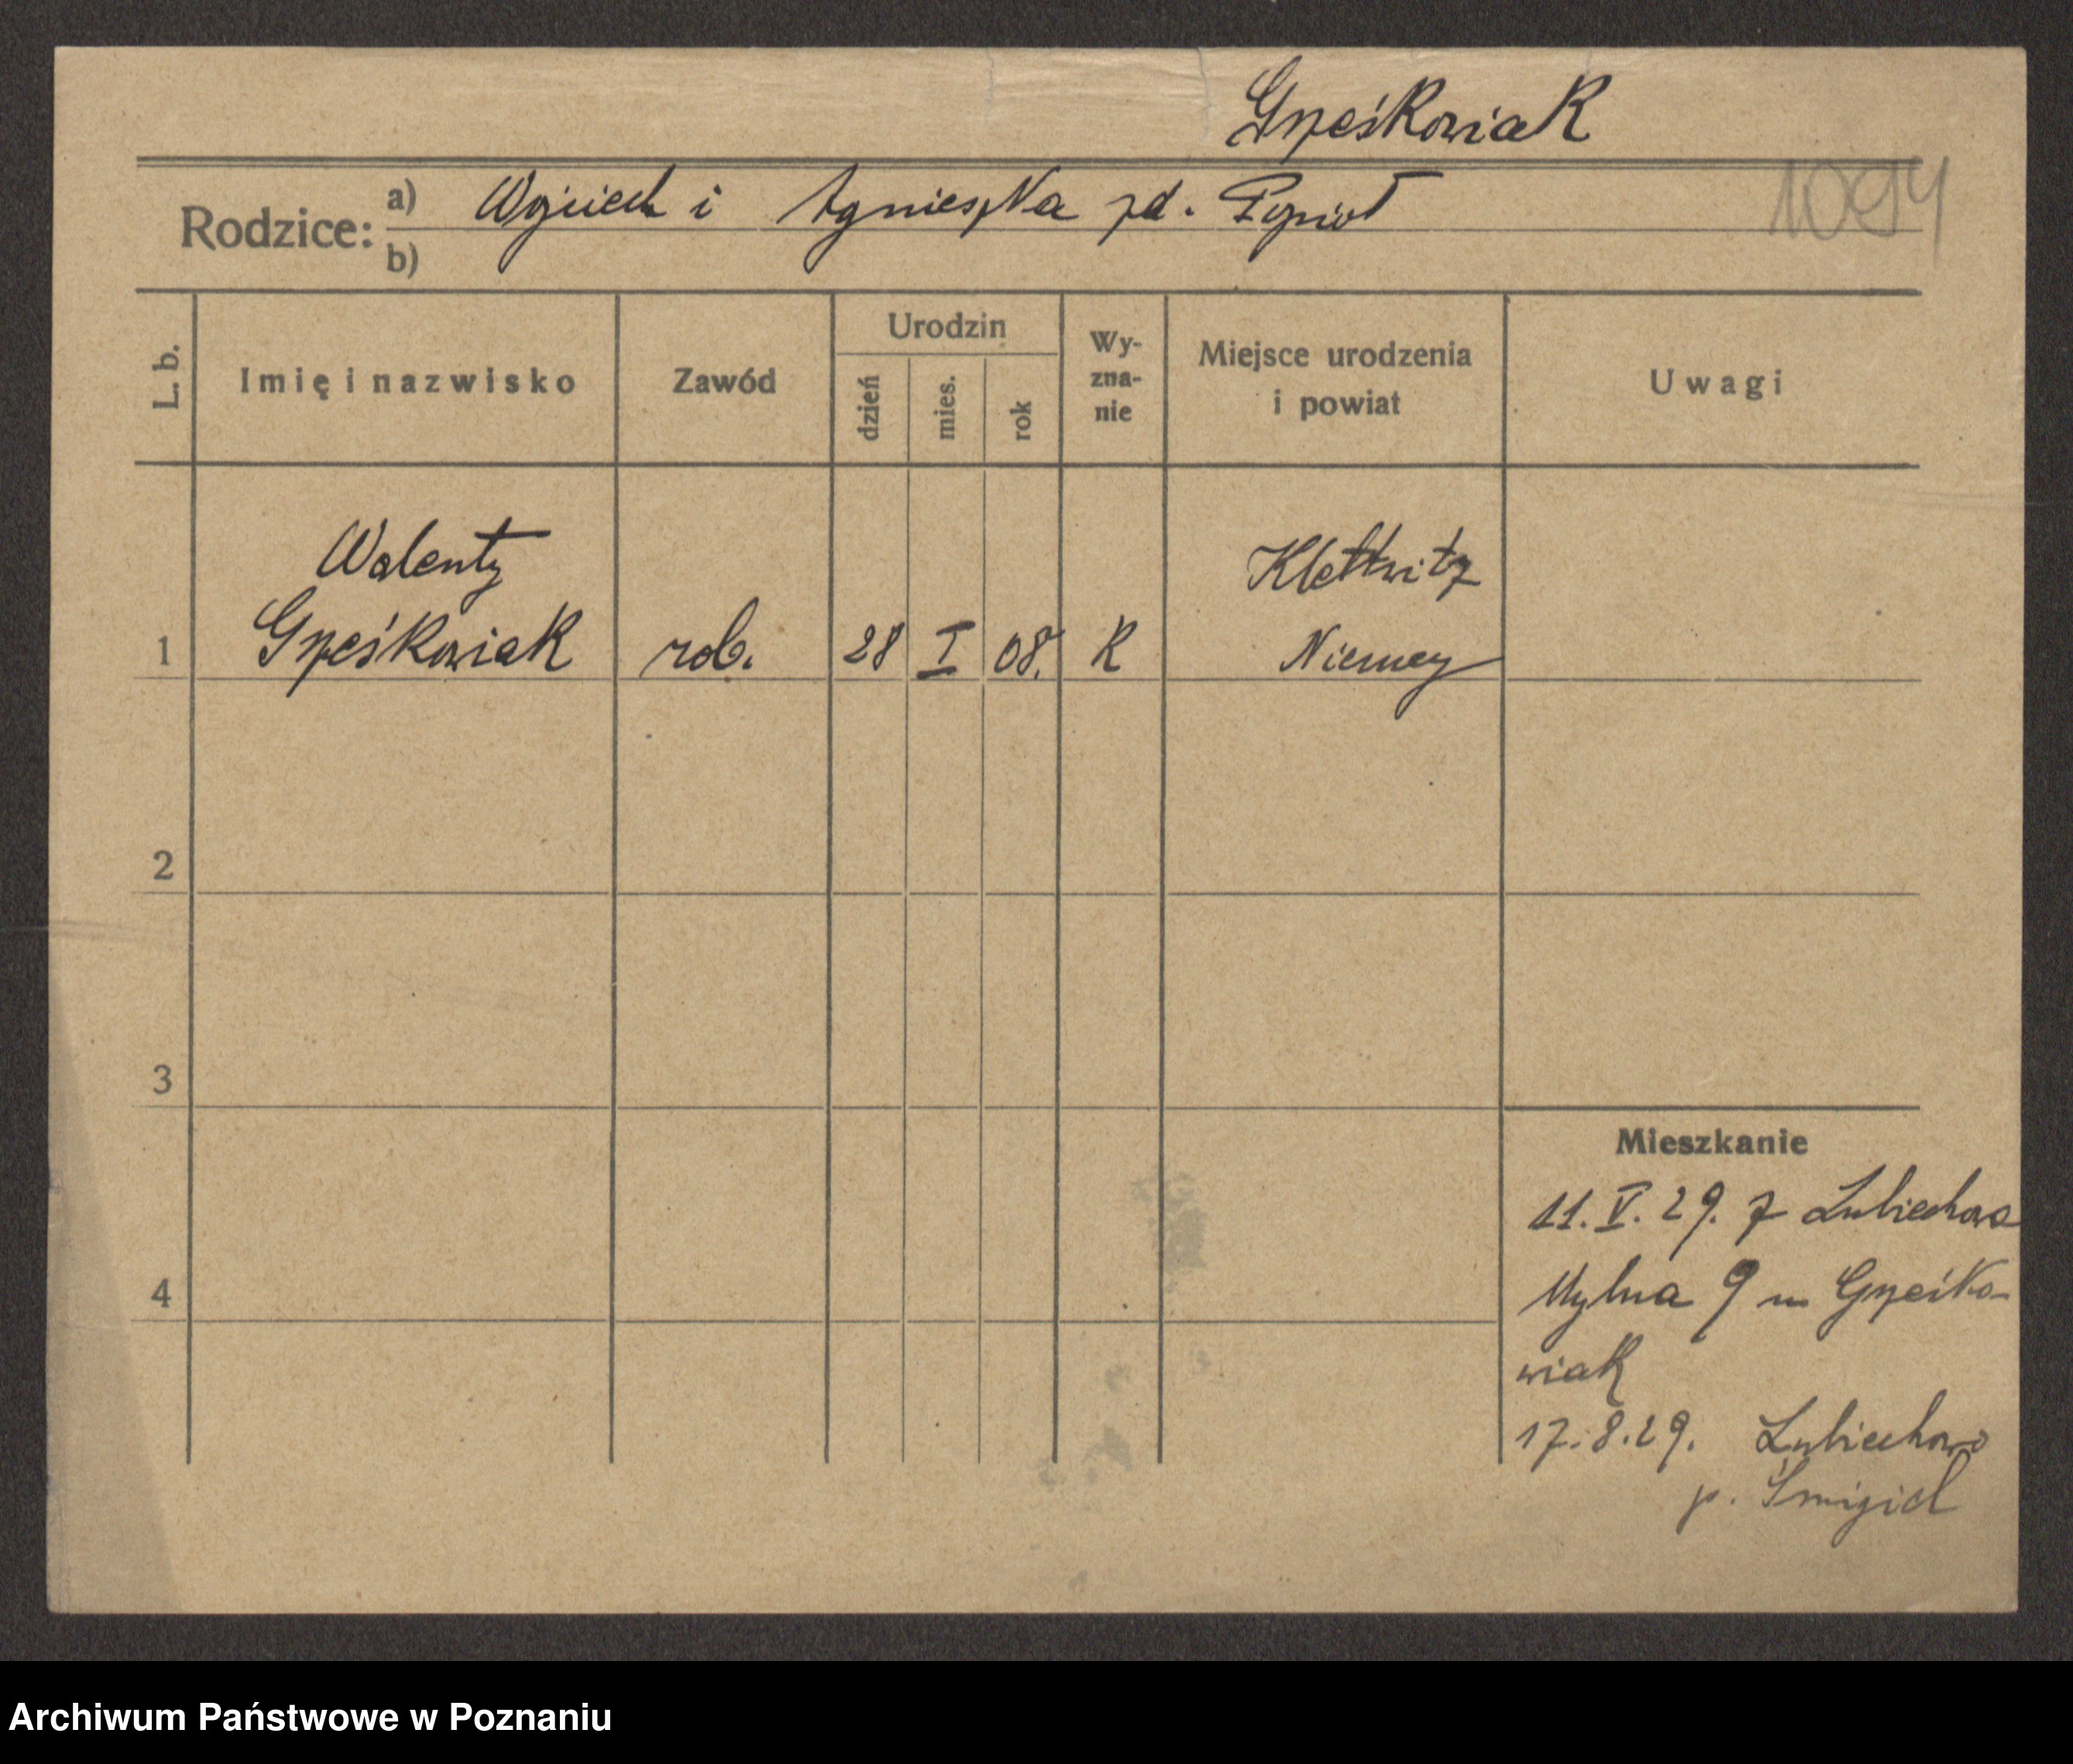 Grześkowiak
1094
Rodzice: a) Wojciech i Agnieszka zd.
b)
L. b. Imię i nazwisko Zawód Urodzin dzień mies. rok Wy-zna-nie Miejsce urodzenia i powiat Uwagi
Walenty Klettwitz
1 Grześkowiak rob. 28 I 08. K Niemcy
2
3
Mieszkanie
11. V. 29. z Lubiechowa
4
Młyńska 9 u Grześko-
wiak
17.8.29. Lubiechowo
p. Śmigiel
Archiwum Państwowe w Poznaniu